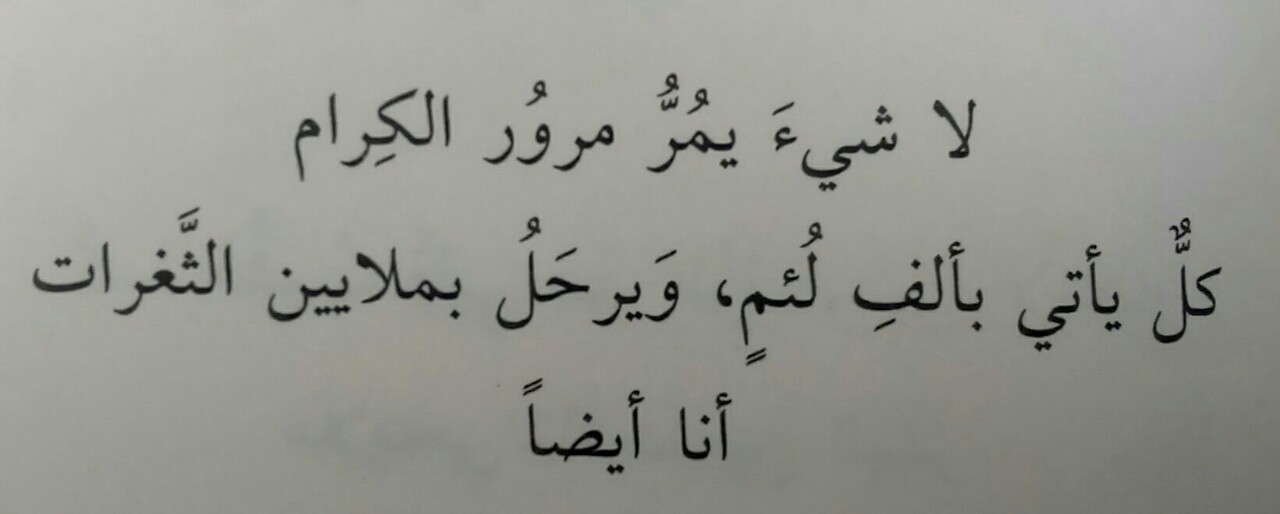 لا شيءَ يمُرُّ مروُر الكِرام
كلٌّ يأتي بألفِ لُئمٍ، وَيرحَلُ بملايين الثَّغرات
أنا أيضاً